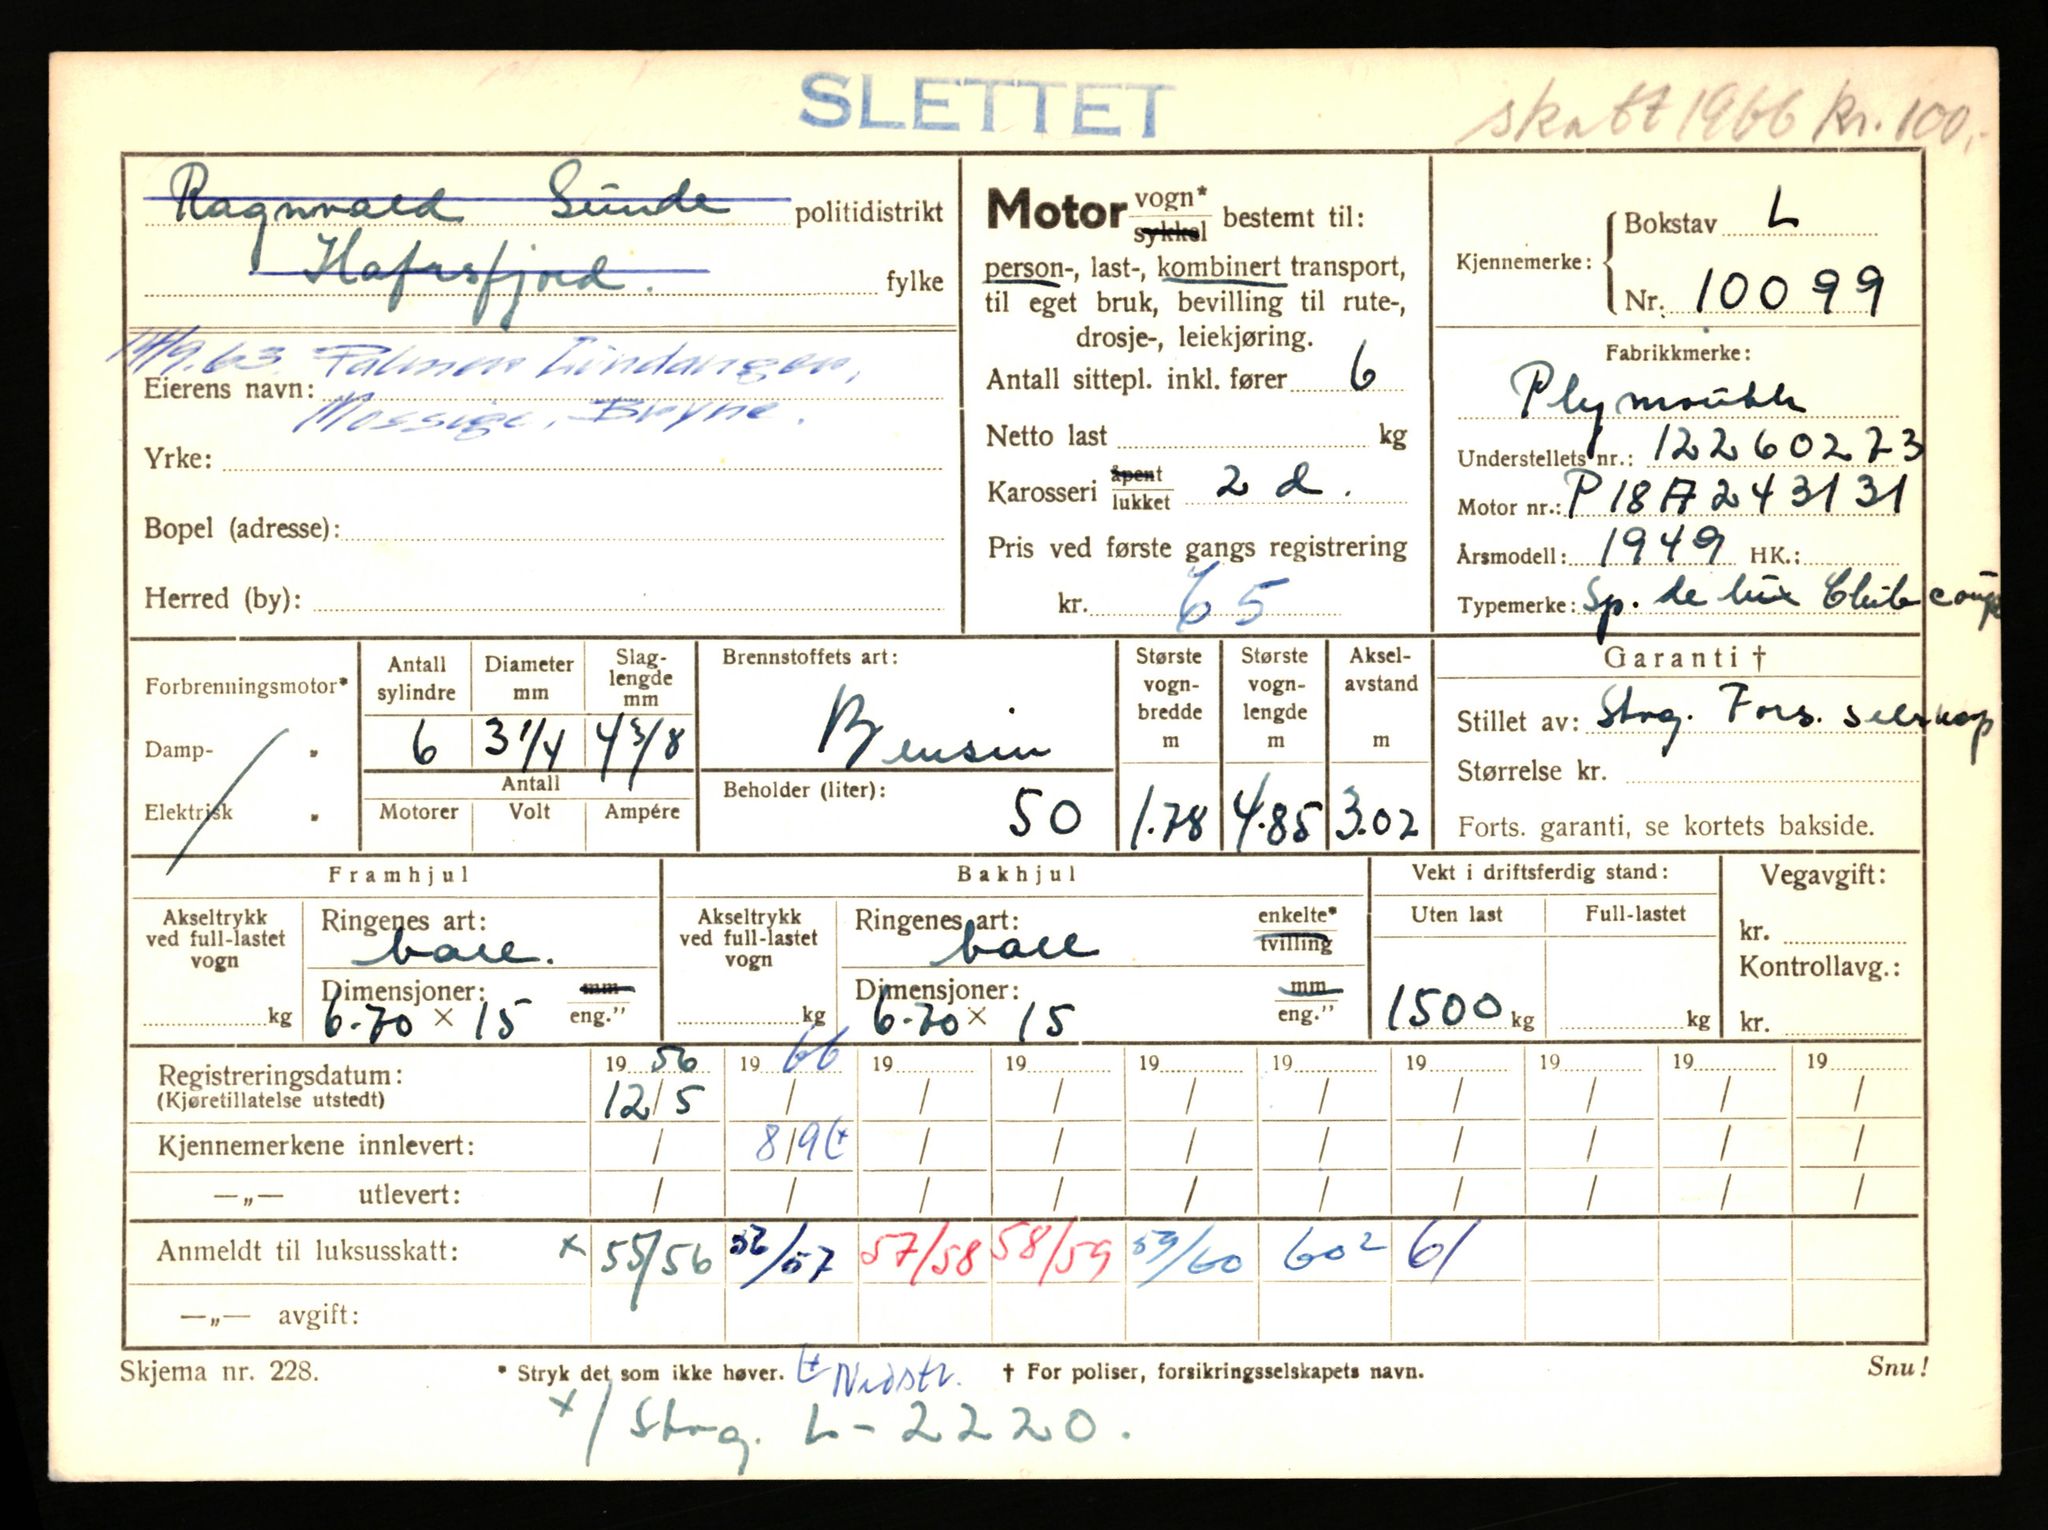 SLETTET
skatt 1966 kr. 100,-
Ragnvald Sunde politidistrikt
Hafrsfjord. fylke
Eierens navn: 14/9.63. Palmer Lindanger,
Mossige, Bryne.
Yrke:
Bopel (adresse):
Herred (by):
Motor vogn* / sykkel bestemt til:
person-, last-, kombinert transport,
til eget bruk, bevilling til rute-,
drosje-, leiekjøring.
Antall sittepl. inkl. fører 6
Netto last kg
Karosseri åpent / lukket 2 d.
Pris ved første gangs registrering
kr. 65
Kjennemerke: Bokstav L
Nr. 10099
Fabrikkmerke:
Plymouth
Understellets nr.: 12260223
Motor nr.: P18A243131
Årsmodell: 1949 HK.:
Typemerke: Sp. de lux Club coupe
Forbrenningsmotor*
Damp- "
Elektrisk "
Antall sylindre 6
Diameter mm 3 1/4
Slaglengde mm 4 3/8
Antall
Motorer Volt Ampére
Brennstoffets art:
Bensin
Beholder (liter): 50
Største vognbredde m 1.78
Største vognlengde m 4.85
Akselavstand m 3.02
Garanti †
Stillet av: Stvg. Fors. selskap
Størrelse kr.
Forts. garanti, se kortets bakside.
Framhjul
Akseltrykk ved full-lastet vogn kg
Ringenes art: ball.
Dimensjoner: mm / eng."
6.70 × 15
Bakhjul
Akseltrykk ved full-lastet vogn kg
Ringenes art: ball enkelte* / tvilling
Dimensjoner: mm / eng."
6.70 × 15
Vekt i driftsferdig stand:
Uten last Full-lastet
1500 kg kg
Vegavgift:
kr.
Kontrollavg.:
kr.
Registreringsdatum: 19 56 19 66 19 19 19 19 19 19 19 19
(Kjøretillatelse utstedt) 12/5 / / / / / / / / /
Kjennemerkene innlevert: / 8/9 / / / / / / / /
—„— utlevert: / / / / / / / / / /
Anmeldt til luksusskatt: x 55/56 56/57 57/58 58/59 59/60 60² 61
—„— avgift:
Skjema nr. 228. * Stryk det som ikke høver. Nedstr. † For poliser, forsikringsselskapets navn. Snu!
x/ Stvg. L-2220.